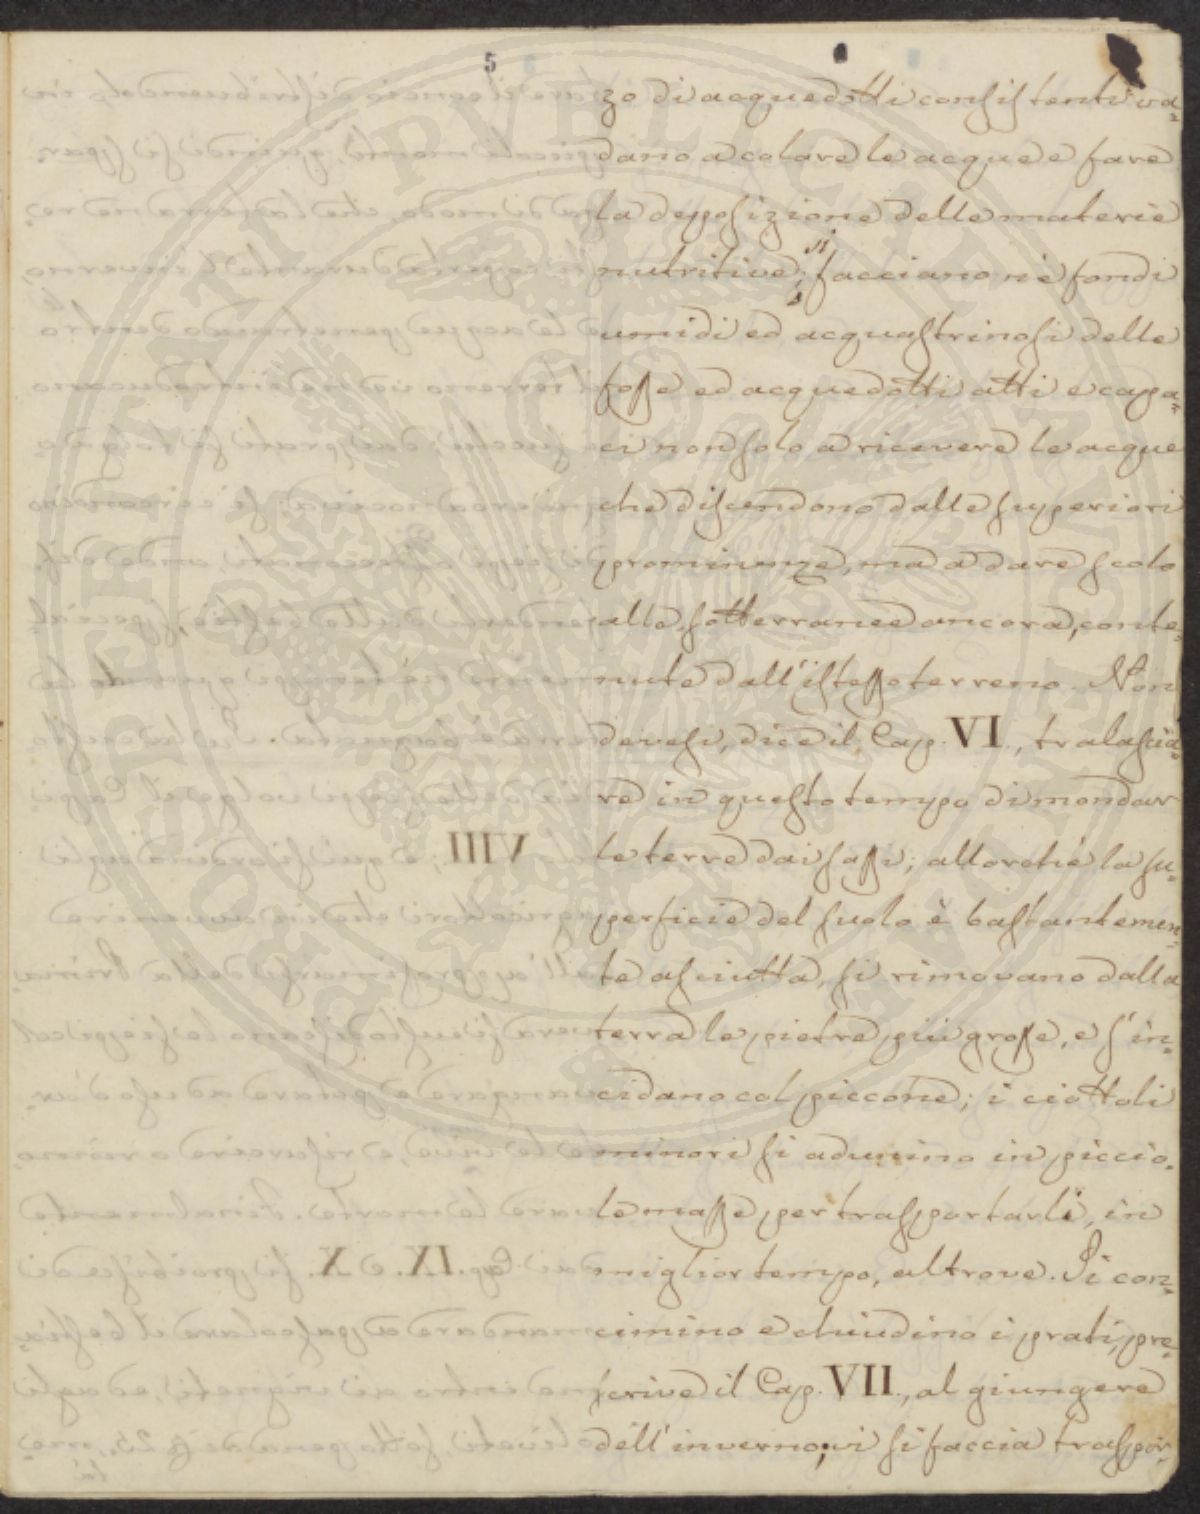 5
zo di acquedotti consistenti va=
dano a colare le acque e fare
la deposizione delle materie
nutritive; si facciano ne' fondi
umidi ed acquastrinosi delle
fosse ed acquedotti atti e capa=
ci non solo a ricevere le acque
che discendono dalle superiori
prominenze, ma a dare scolo
alle sotterranee ancora, conte=
nute dall'istesso terreno. Non
devesi, dice il Cap. VI., tralascia=
re in questo tempo di mondar
le terre dai sassi; allorchè la su=
perficie del suolo è bastantemen=
te asciutta, si rimovano dalla
terra le pietre più grosse, e s'in=
cidano col piccone; i ciottoli
minori si adunino in piccio=
le masse per trasportarli, in
miglior tempo, altrove. Si con=
cimino e chiudino i prati, pre=
scrive il Cap. VII., al giungere
dell'inverno; vi si faccia traspor=